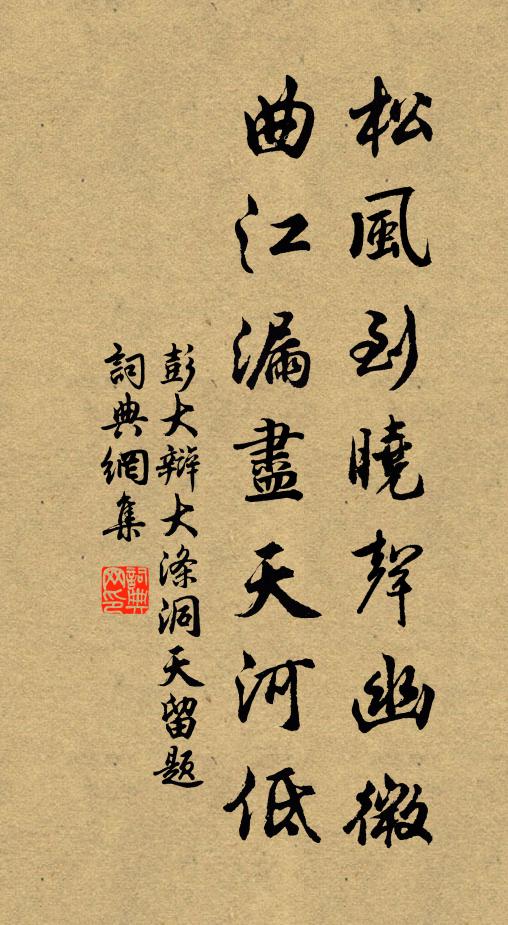 松風到曉聲幽微
曲江漏盡天河低
彭大辯大涤洞天留題
詞典網集
詞典网印